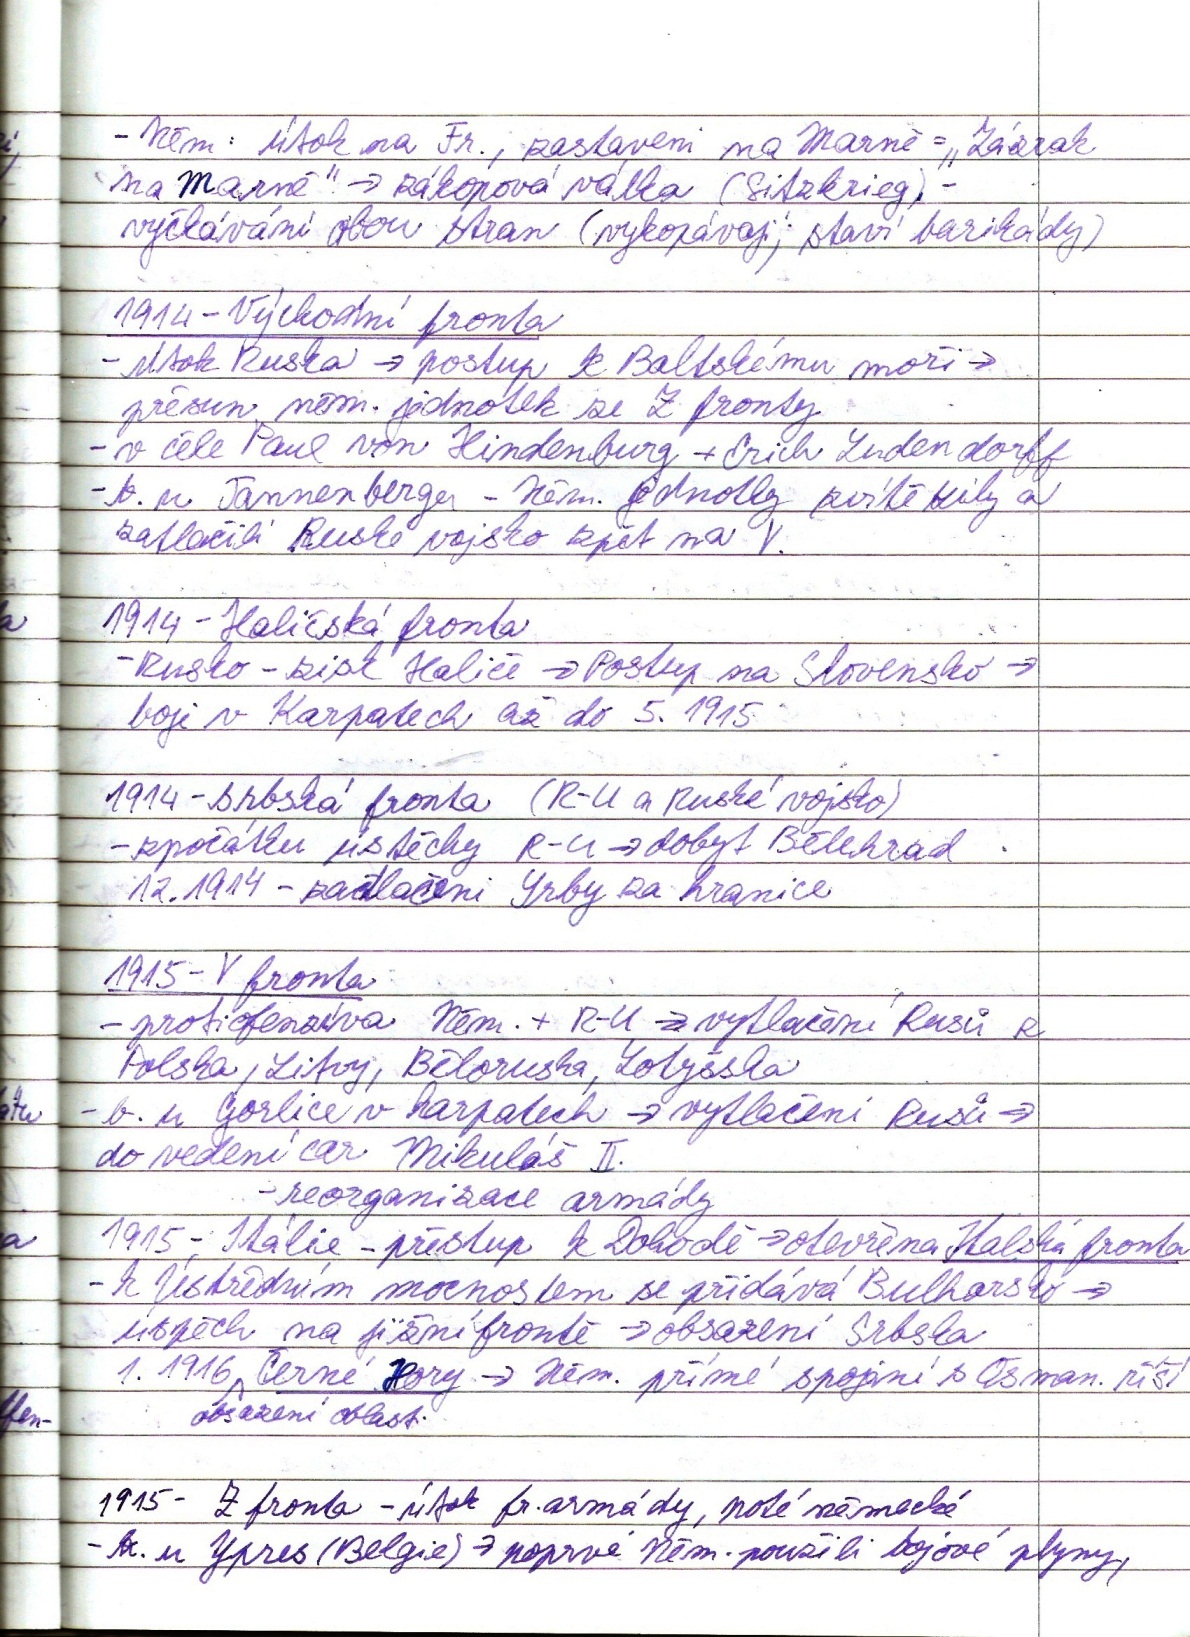 - Něm: útok na Fr., zastaveni na Marně = „Zázrak
na Marně" → zákopová válka (Sitzkrieg) -
vyčkávání obou stran (vykopávají, staví barikády)
1914 - Východní fronta
- útok Ruska → postup k Baltskému moři →
přesun něm. jednotek ze Z fronty
- v čele Paul von Hindenburg + Erich Ludendorff
- b. u Tannenbergu - Něm. jednotky zvítězily a
zatlačili Ruské vojsko zpět na V.
1914 - Haličská fronta
- Rusko - zisk Haliče → Postup na Slovensko →
boje v Karpatech až do 5. 1915
1914 - srbská fronta (R-U a Ruské vojsko)
- zpočátku úspěchy R-U → dobyt Bělehrad
12.1914 - zatlačeni Srby za hranice
1915 - V fronta
- protiofenzíva Něm. + R-U → vytlačení Rusů z
Polska, Litvy, Běloruska, Lotyšska
- b. u Gorlice v Karpatech → vytlačení Rusů →
do vedení car Mikuláš II.
- reorganizace armády
1915 - Itálie - přístup k Dohodě → otevřena Italská fronta
- k Ústředním mocnostem se přidává Bulharsko →
úspěch na jižní frontě → obsazení Srbska
1. 1916 Černé Hory → Něm. přímé spojení s Osman. říší
obsazení oblast.
1915 - Z fronta - útok fr. armády, poté německé
- b. u Ypres (Belgie) → poprvé Něm. použili bojové plyny,